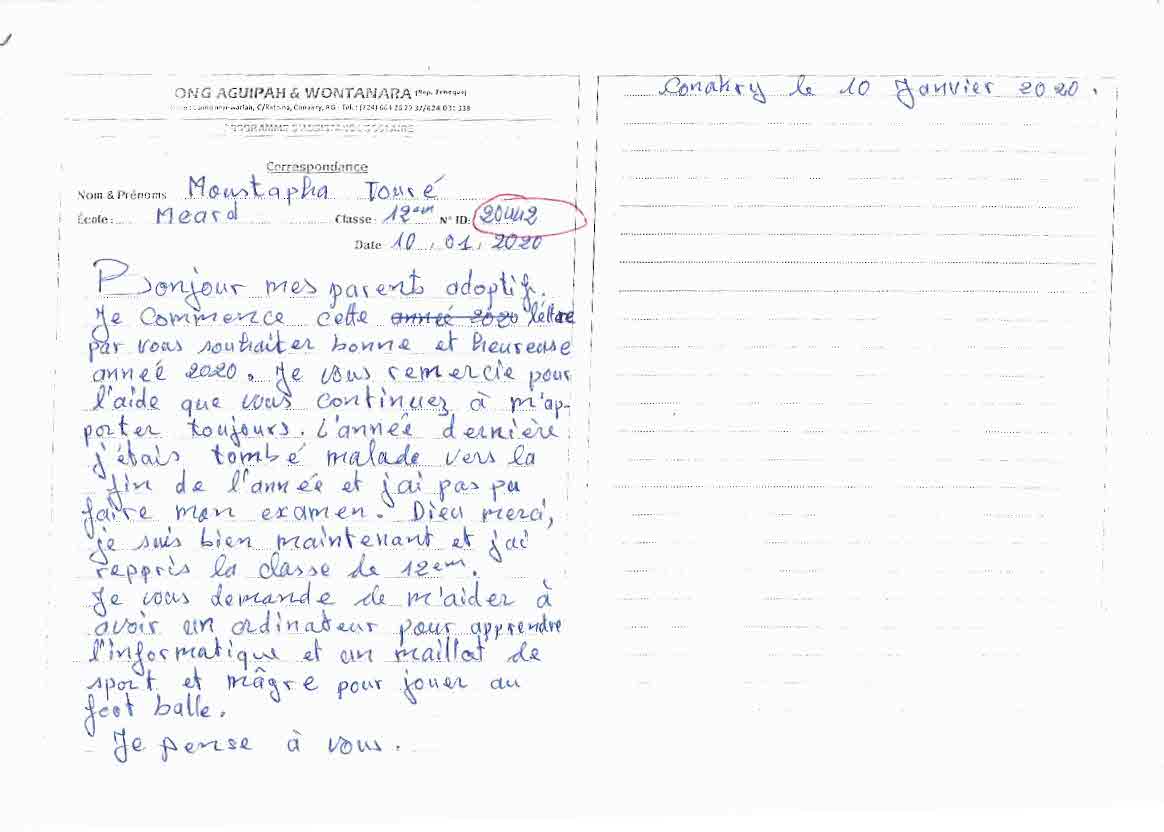 ONG AGUIPAH & WONTANARA
PROGRAMME D'ASSISTANCE SCOLAIRE
Correspondance
Nom & Prénoms Moustapha Touré
École: Meard Classe: 12em N° ID: 20442
Date 10, 01, 2020
Bonjour mes parents adoptif.
Je commence cette année 2020 léttre
par vous souhaiter bonne et heureuse
année 2020. Je vous remercie pour
l'aide que vous continuez à m'ap-
porter toujours. L'année dernière
j'étais tombé malade vers la
fin de l'année et j'ai pas pu
faire mon examen. Dieu merci,
je suis bien maintenant et j'ai
reppris la classe de 12em.
Je vous demande de m'aider à
avoir un ordinateur pour apprendre
l'informatique et un maillot de
sport et mâgre pour jouer au
foot balle.
Je pense à vous.
Conakry le 10 Janvier 2020.